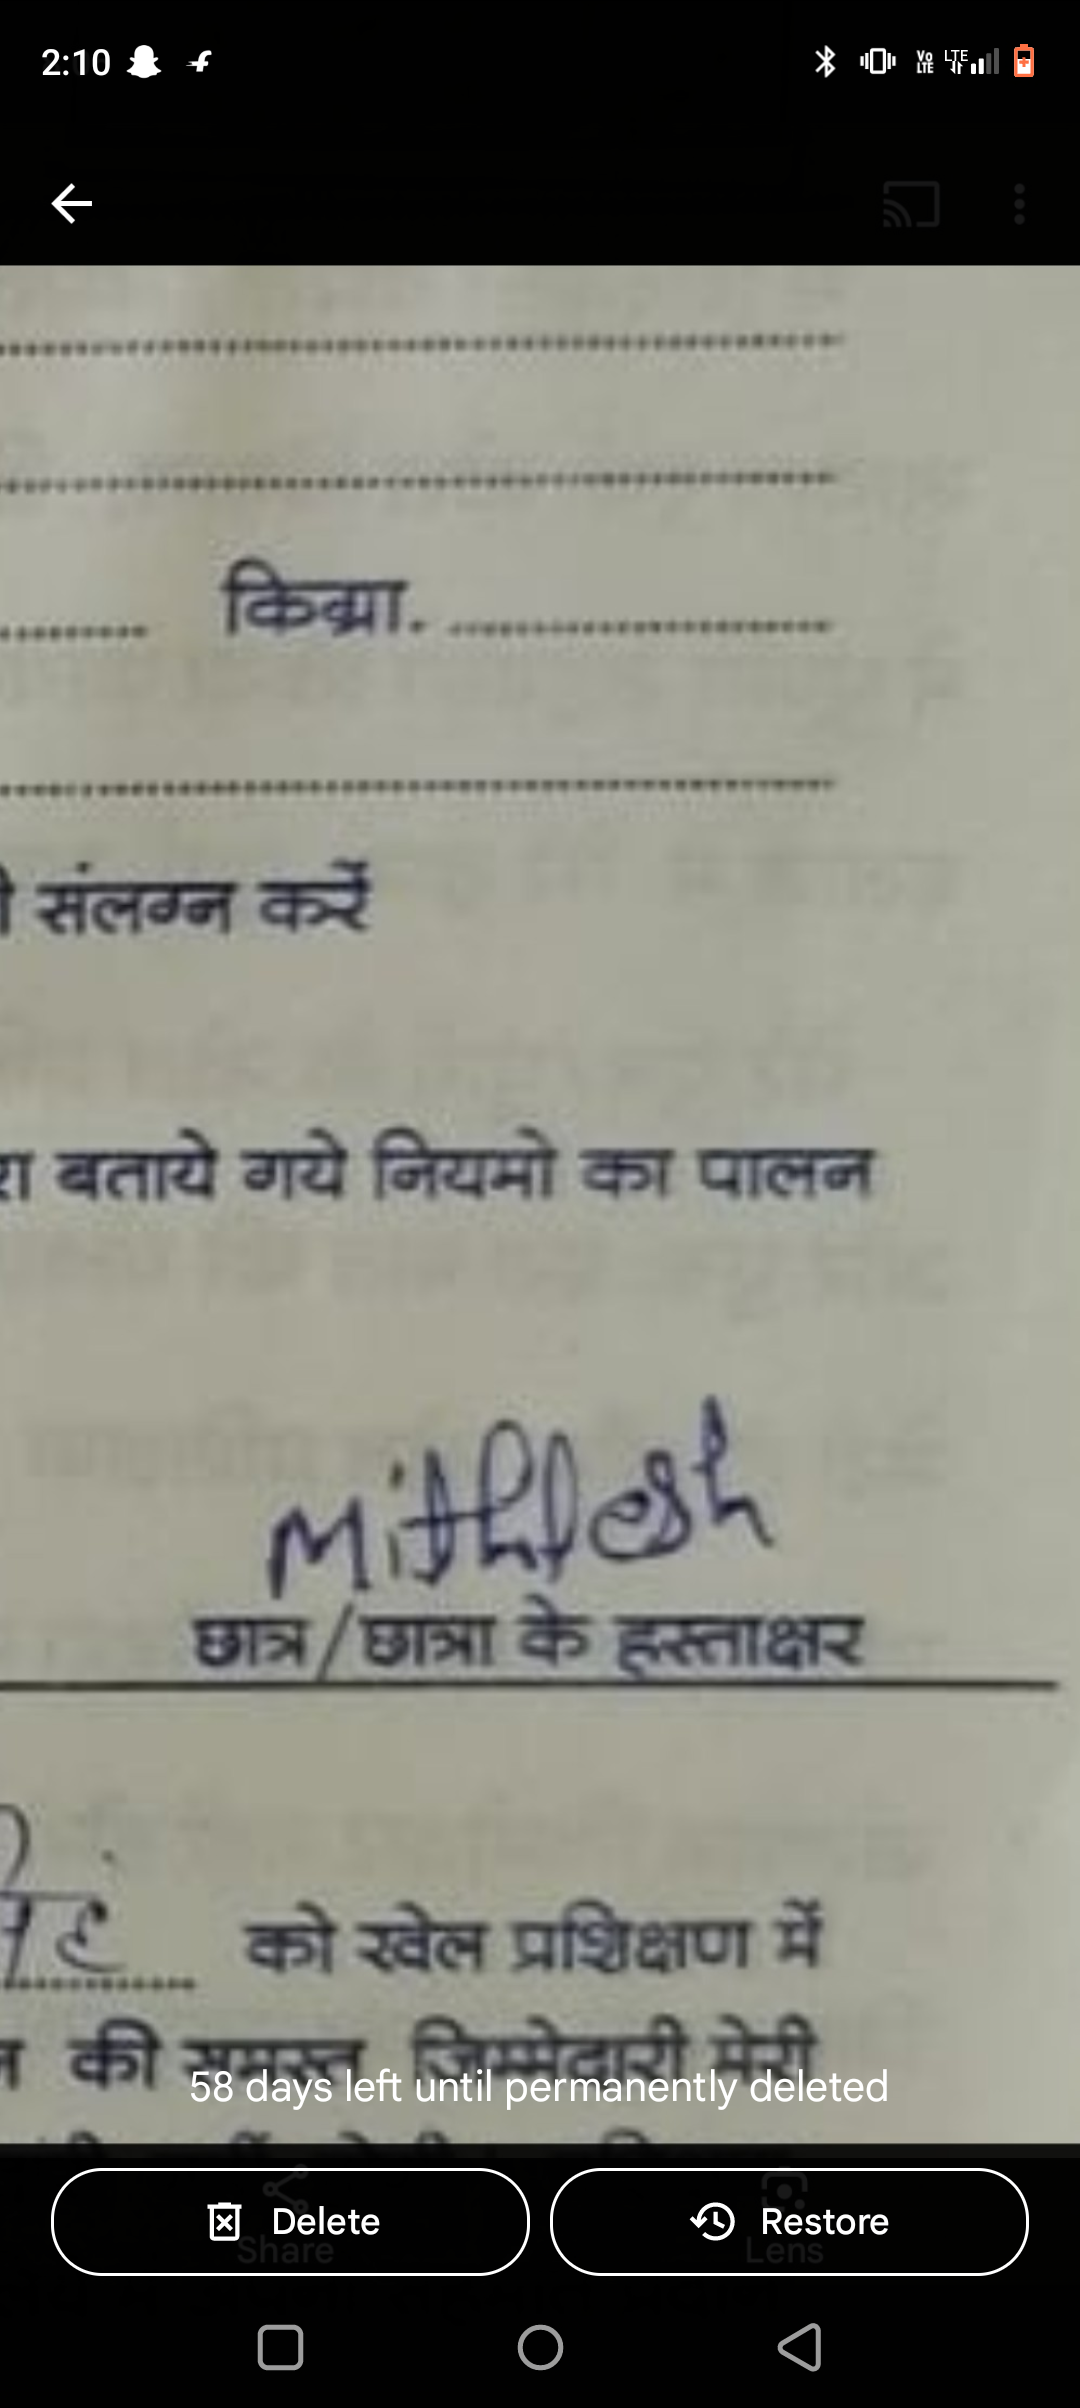 2:10
Vo LTE LTE
किग्रा.
संलग्न करें
बताये गये नियमो का पालन
Mithlesh
छात्र/छात्रा के हस्ताक्षर
को खेल प्रशिक्षण में
की समस्त जिम्मेदारी मेरी
58 days left until permanently deleted
Delete Restore
Share Lens